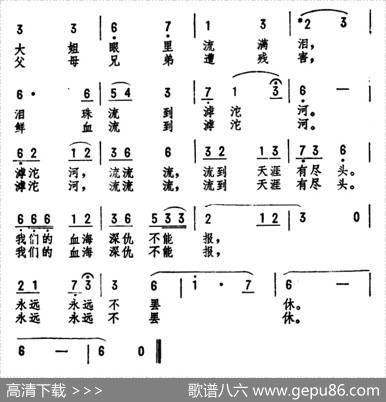 3 3 6 7 | 1 3 | 2 3 |
大 姐 眼 里 流 满 泪，
父 母 兄 弟 遭 残 害，
6· 6 | 54 3 | 7 1 3 | 6 — |
泪 珠 流 到 滹 沱 河。
鲜 血 流 到 滹 沱 河。
62 12 | 36 6 | 32 13 | 73 6 |
滹沱 河， 流流 流， 流到 天涯 有尽 头。
滹沱 河， 流流 流， 流到 天涯 有尽 头。
666 12 | 36 533 | 2 12 | 3 0 |
我们的 血海 深仇 不能 报，
我们的 血海 深仇 不能 报，
21 73 | 3 6 | 1· 7 | 6 — |
永远 永远 不 罢 休。
永远 永远 不 罢 休。
6 — | 6 0 ‖
高清下载 >>> 歌谱八六 www.gepu86.com